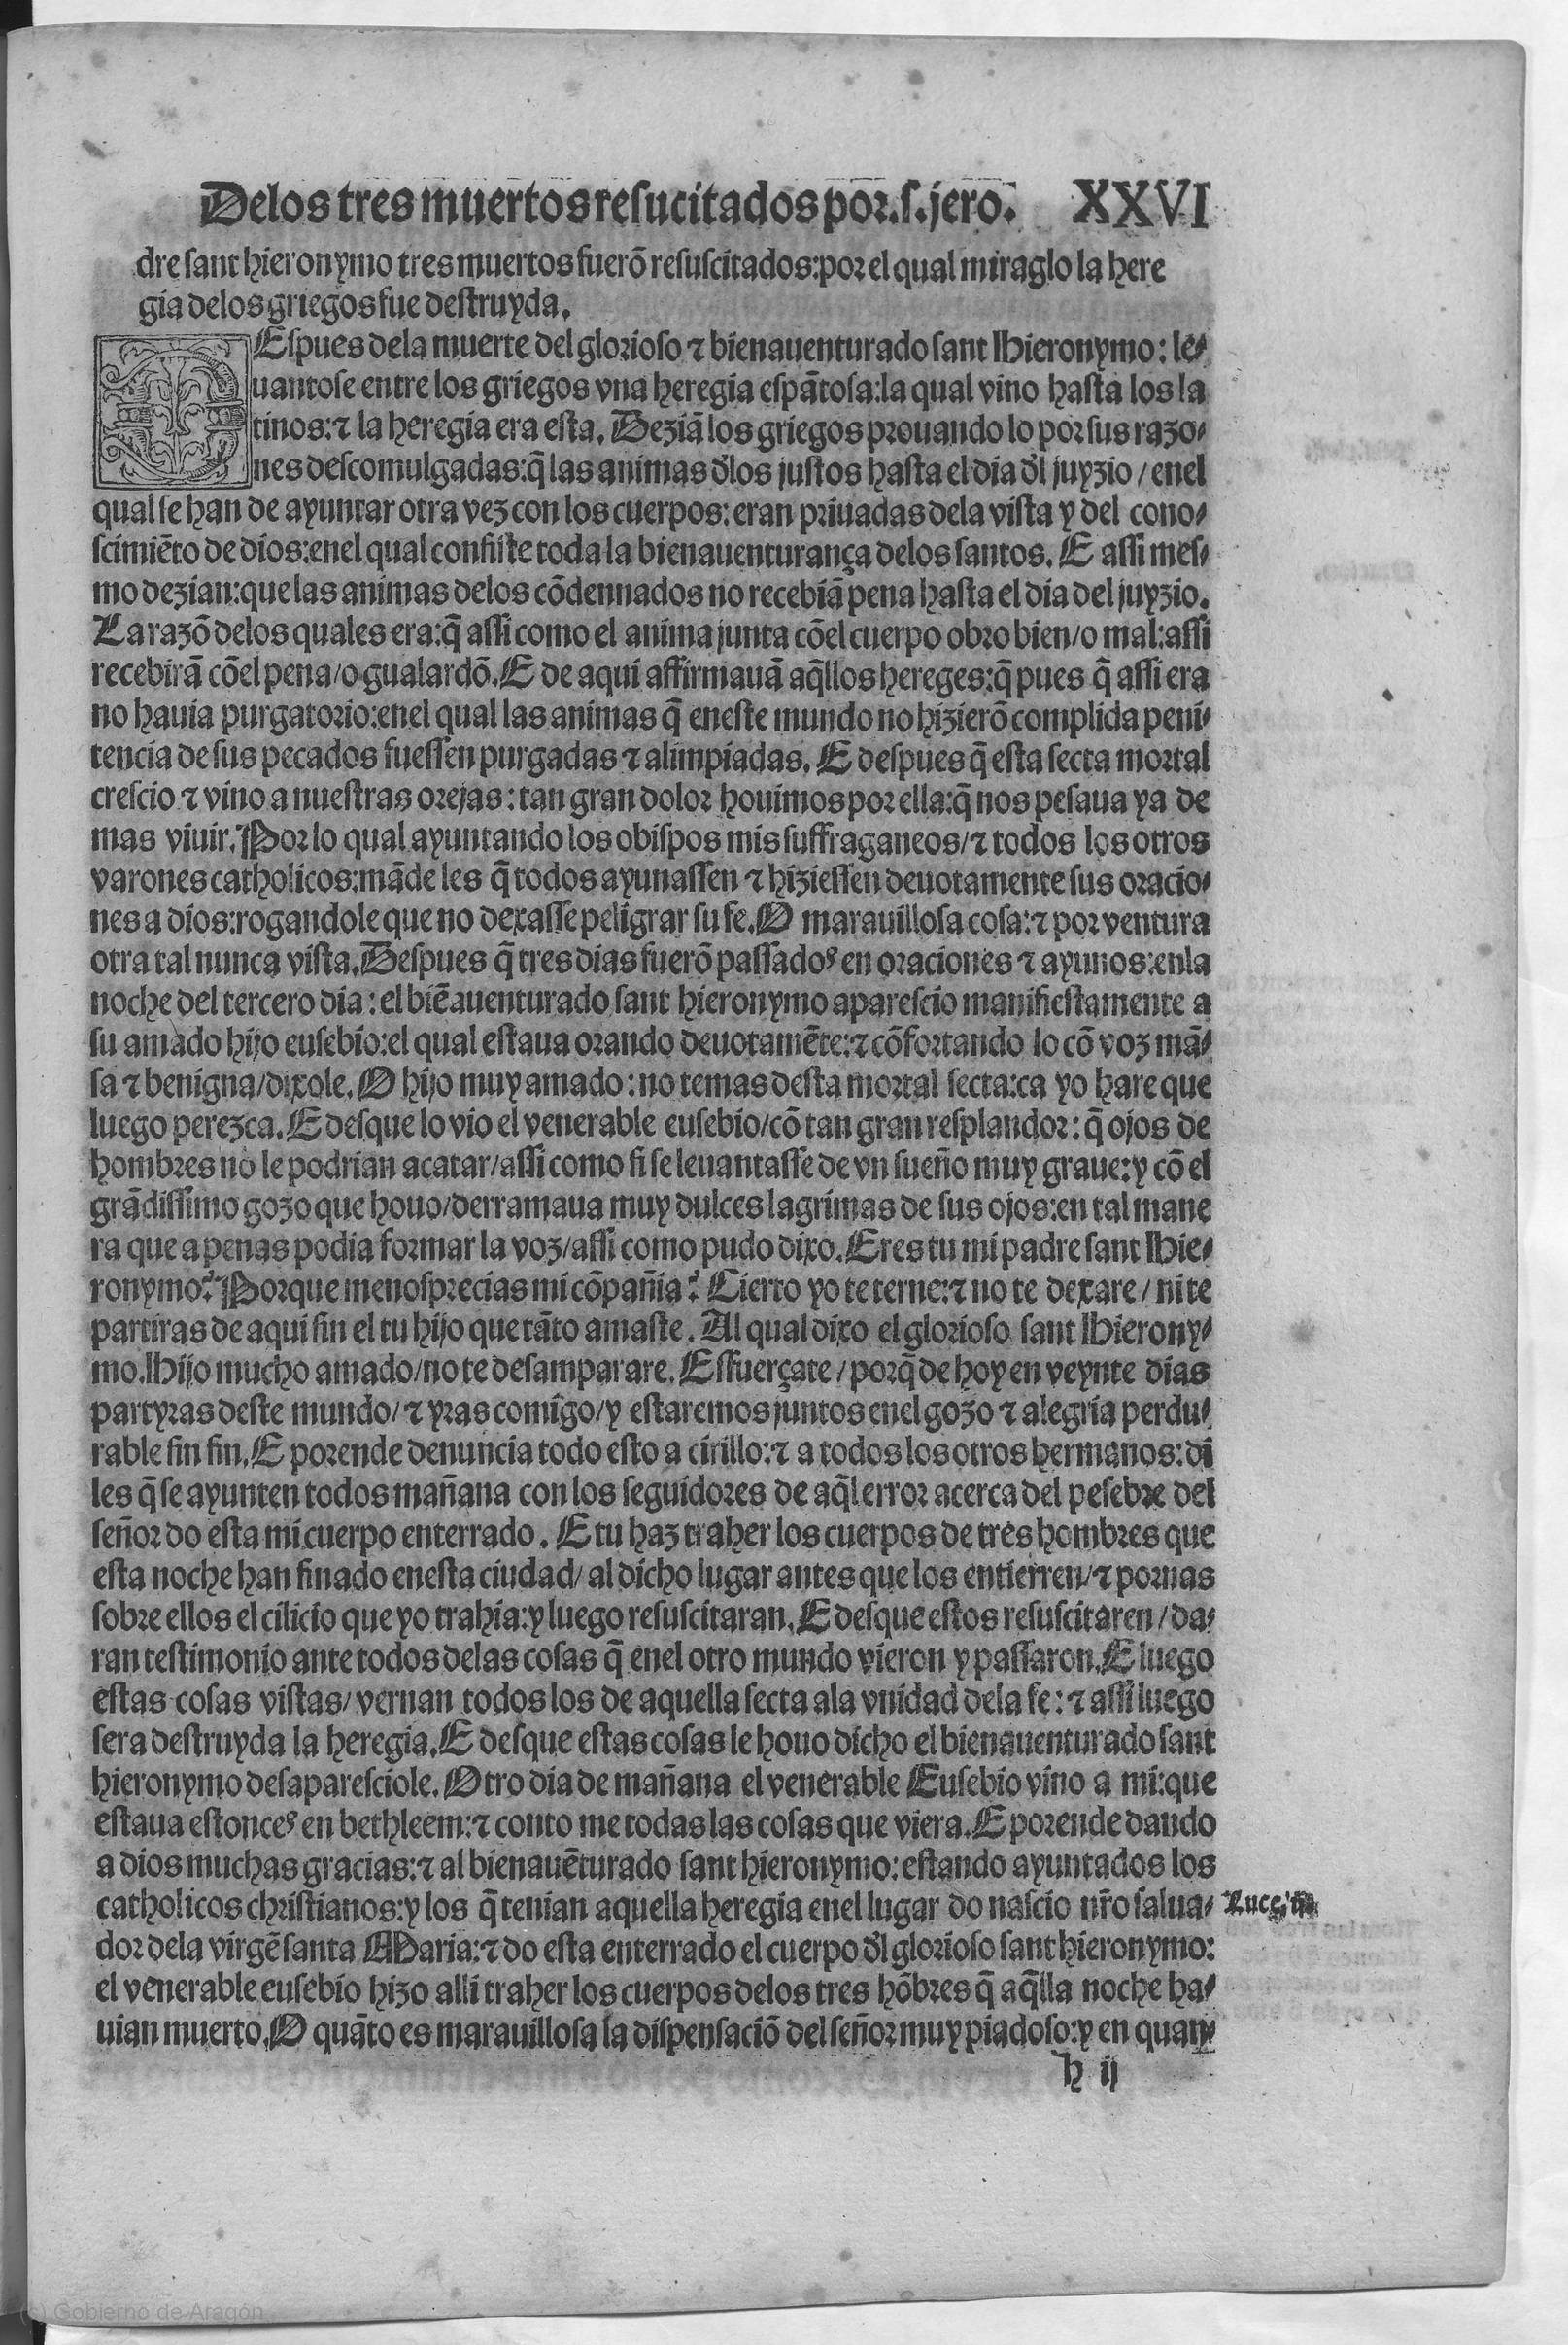 Delos tres muertos resucitados por.s.jero. XXVI
dre sant hieronymo tres muertos fuerõ resuscitados:por el qual miraglo la here
gia delos griegos fue destruyda.
DEspues dela muerte del glorioso ⁊ bienauenturado sant Hieronymo: le-
uantose entre los griegos vna heregia espãtosa:la qual vino hasta los la
tinos:⁊ la heregia era esta. Deziã los griegos prouando lo por sus razo-
nes descomulgadas:q̃ las animas d̓los justos hasta el dia d̓l juyzio / enel
qual se han de ayuntar otra vez con los cuerpos: eran priuadas dela vista y del cono-
scimiẽto de dios:enel qual consiste toda la bienauenturança delos santos. E assi mes-
mo dezian:que las animas delos cõdennados no recebiã pena hasta el dia del juyzio.
La razõ delos quales era:q̃ assi como el anima junta cõel cuerpo obro bien/o mal:assi
recebirã cõel pena/o gualardõ.E de aqui affirmauã aq̃llos hereges:q̃ pues q̃ assi era
no hauia purgatorio:enel qual las animas q̃ eneste mundo no hizierõ complida peni-
tencia de sus pecados fuessen purgadas ⁊ alimpiadas. E despues q̃ esta secta mortal
crescio ⁊ vino a nuestras orejas: tan gran dolor houimos por ella:q̃ nos pesaua ya de
mas viuir.Por lo qual ayuntando los obispos mis suffraganeos/⁊ todos los otros
varones catholicos:mãde les q̃ todos ayunassen ⁊ hiziessen deuotamente sus oracio-
nes a dios:rogandole que no dexasse peligrar su fe.O marauillosa cosa:⁊ por ventura
otra tal nunca vista.Despues q̃ tres dias fuerõ passadoꝰ en oraciones ⁊ ayunos:enla
noche del tercero dia: el biẽauenturado sant hieronymo aparescio manifiestamente a
su amado hijo eusebio:el qual estaua orando deuotamẽte:⁊ cõfortando lo cõ voz mã-
sa ⁊ benigna/dixole. O hijo muy amado: no temas desta mortal secta:ca yo hare que
luego perezca.E desque lo vio el venerable eusebio/cõ tan gran resplandor: q̃ ojos de
hombres no le podrian acatar/assi como si se leuantasse de vn sueño muy graue:y cõ el
grãdissimo gozo que houo/derramaua muy dulces lagrimas de sus ojos:en tal mane
ra que a penas podia formar la voz/assi como pudo dixo.Eres tu mi padre sant Hie-
ronymo? Porque menosprecias mi cõpañia? Cierto yo te terne:⁊ no te dexare / ni te
partiras de aqui sin el tu hijo que tãto amaste. Al qual dixo el glorioso sant Hierony-
mo.Hijo mucho amado/no te desamparare. Esfuerçate / porq̃ de hoy en veynte dias
partyras deste mundo/⁊ yras comigo/y estaremos juntos enel gozo ⁊ alegria perdu-
rable sin fin.E porende denuncia todo esto a cirillo:⁊ a todos los otros hermanos: di
les q̃ se ayunten todos mañana con los seguidores de aq̃l error acerca del pesebre del
señor do esta mi cuerpo enterrado. E tu haz traher los cuerpos de tres hombres que
esta noche han finado enesta ciudad/ al dicho lugar antes que los entierren/⁊ pornas
sobre ellos el cilicio que yo trahia:y luego resuscitaran.E desque estos resuscitaren / da-
ran testimonio ante todos delas cosas q̃ enel otro mundo vieron y passaron.E luego
estas cosas vistas/ vernan todos los de aquella secta ala vnidad dela fe: ⁊ assi luego
sera destruyda la heregia.E desque estas cosas le houo dicho el bienauenturado sant
hieronymo desaparesciole. Otro dia de mañana el venerable Eusebio vino a mi:que
estaua estonceꝰ en bethleem:⁊ conto me todas las cosas que viera.E porende dando
a dios muchas gracias:⁊ al bienauẽturado sant hieronymo: estando ayuntados los
catholicos christianos:y los q̃ tenian aquella heregia enel lugar do nascio nr̃o salua-
dor dela virgẽ santa Maria:⁊ do esta enterrado el cuerpo d̓l glorioso sant hieronymo:
el venerable eusebio hizo alli traher los cuerpos delos tres hõbres q̃ aq̃lla noche ha-
uian muerto.O quãto es marauillosa la dispensaciõ del señor muy piadoso:y en quan-
h ij
(c) Gobierno de Aragón